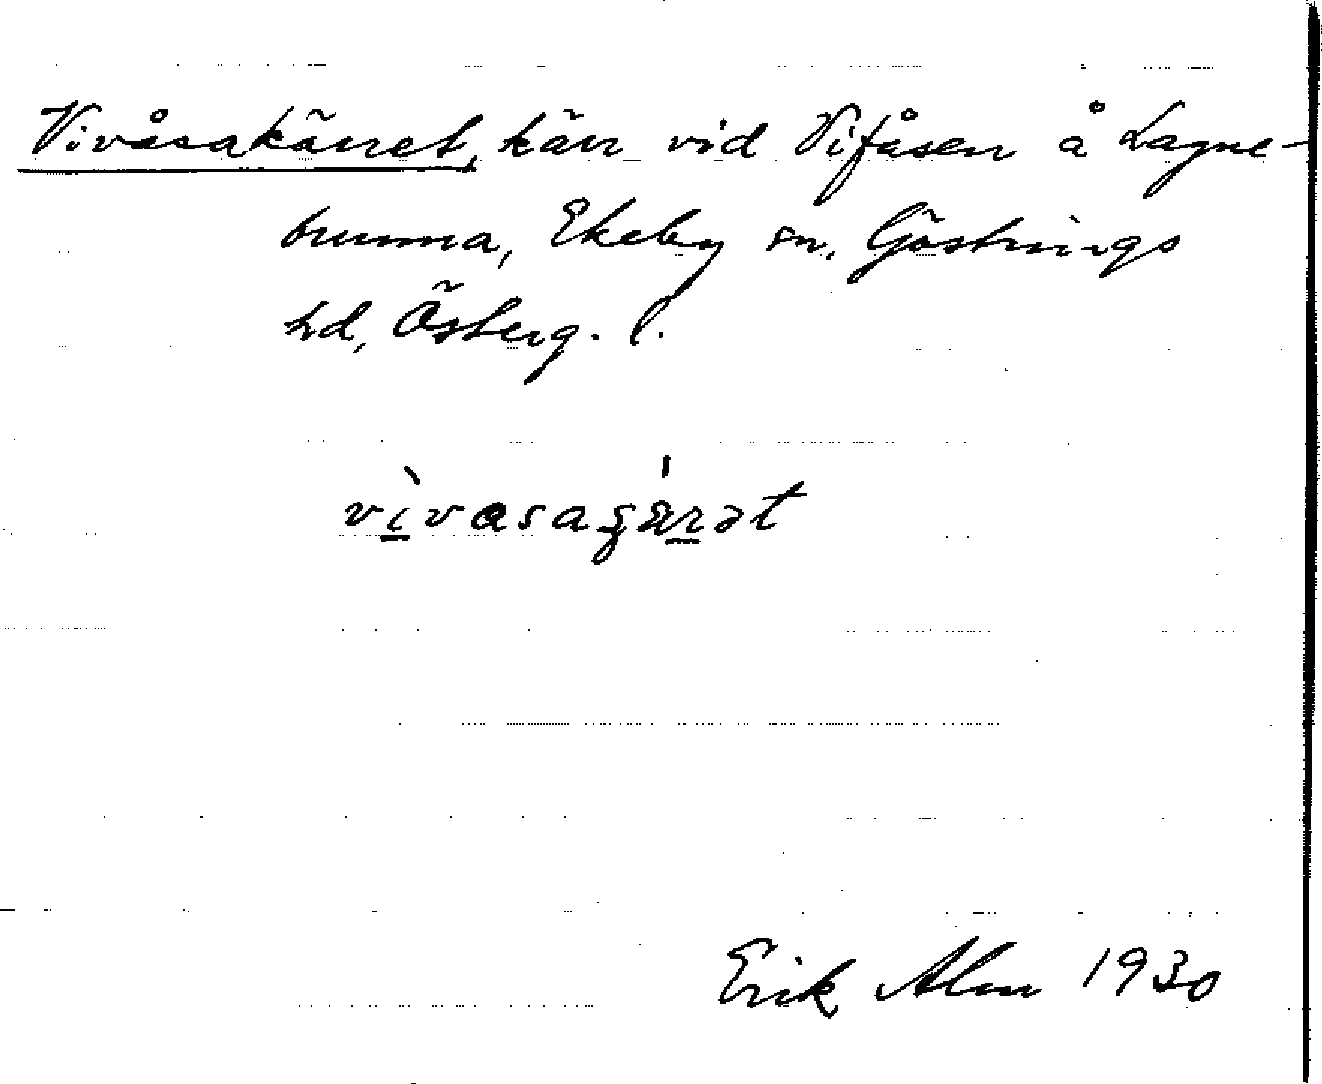 Vivåsakärret, kärr vid Vifåsen å Lagne-
brunna, Ekeby sn, Göstrings
hd, Österg. l.
vìvasagárət
Erik Alm 1930